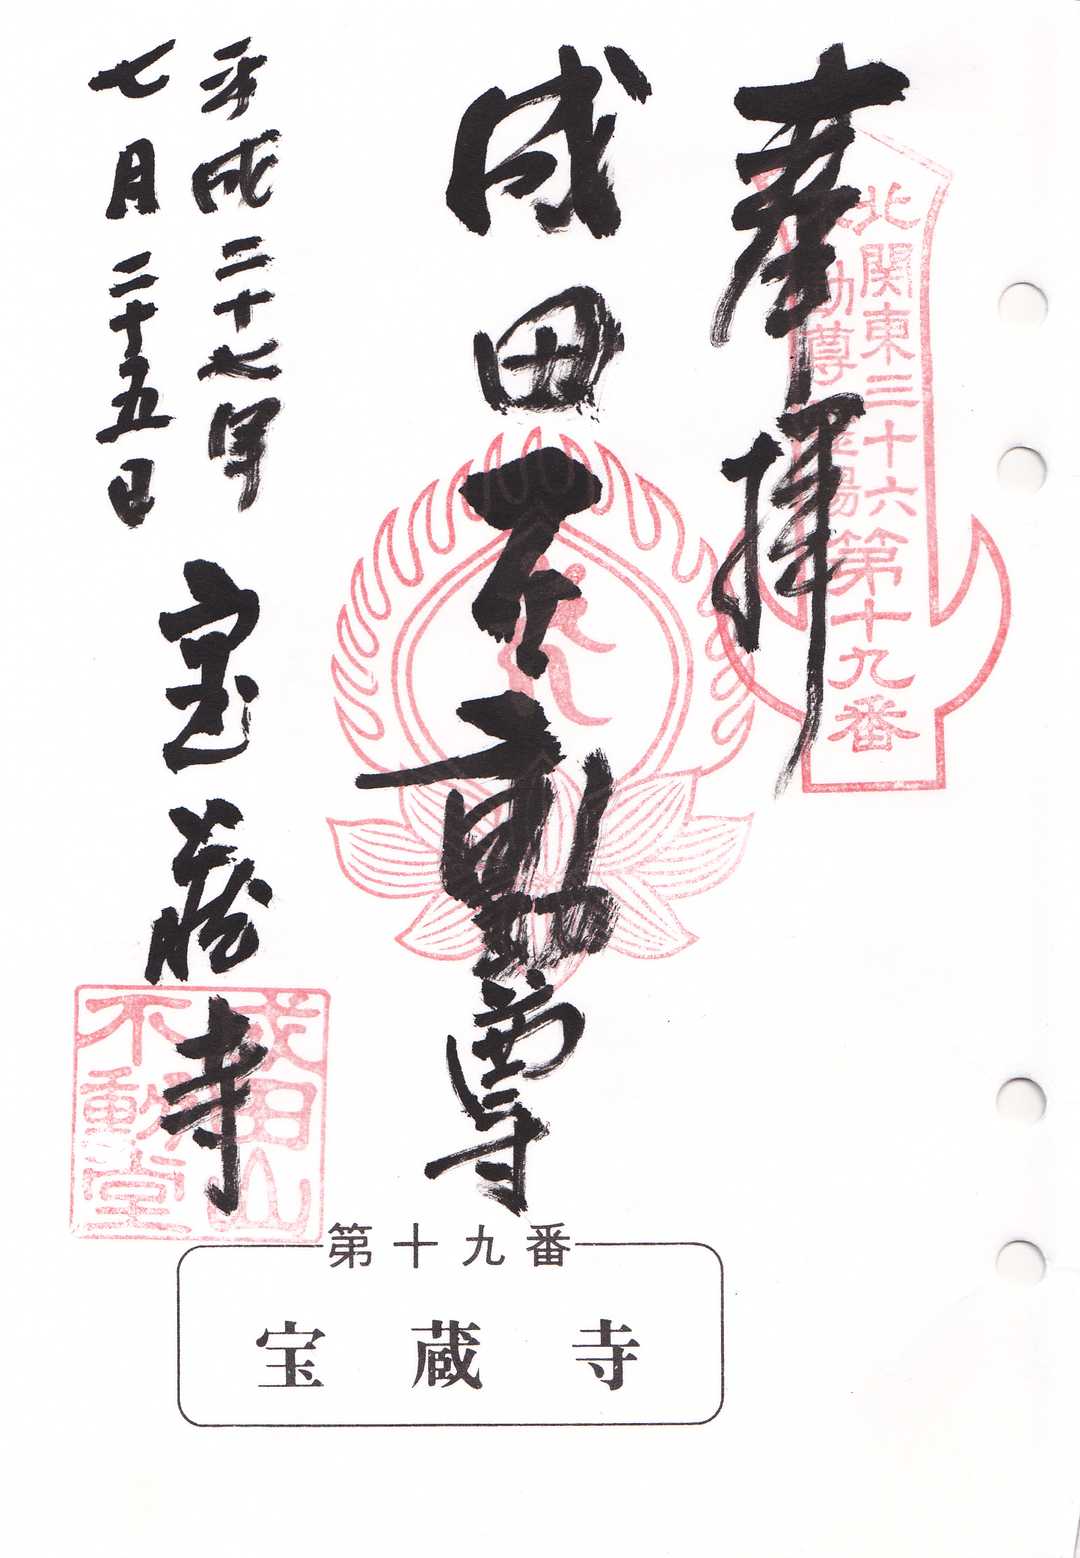 奉拝
北関東三十六
不動尊霊場第十九番
成田不動尊
平成二十七年
七月二十五日
宝蔵寺
成田山
不動堂
第十九番
宝蔵寺